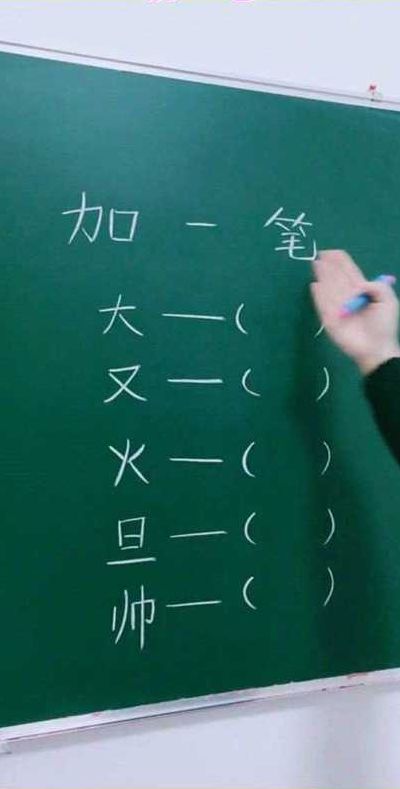 加一笔
大 — ( )
又 — ( )
火 — ( )
旦 — ( )
帅 — ( )